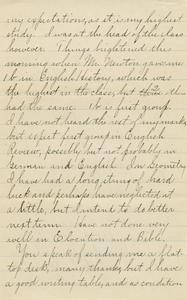 very expectations, as it is my highest
study. I was at the head of the class
however. Things brightened this
morning when Mr. Newton gave me
16 in English History, which was
the highest in the class, but three
had the same. It is first group.
I have not heard the rest of my marks,
but expect first group in English
Review, possibly but not probably in
German and English. In Geometry
I have had a long string of hard
luck and perhaps have neglected it
a little, but I intend to do better
next term. Have not done very
well in Elocution and Bible.
You speak of sending me a flat-
top desk, many thanks, but I have
a good writing table, and as condition